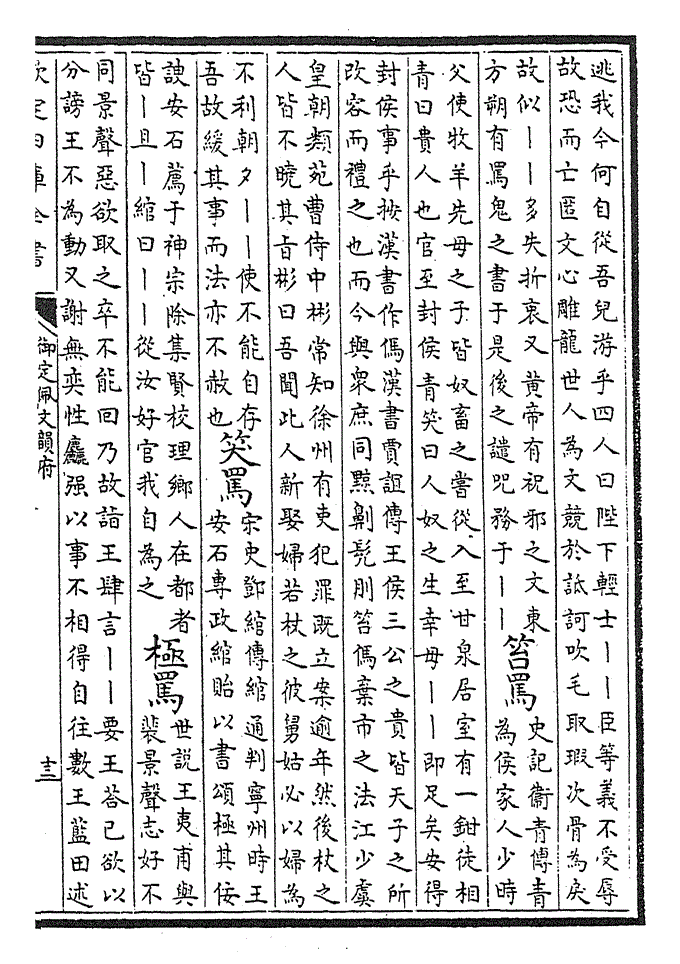 逃我今何自從吾兒游乎四人曰陛下輕士丨丨臣等義不受辱
故恐而亡匿文心雕龍世人為文競於詆訶吹毛取瑕次骨為戾
故似丨丨多失折衷又黃帝有祝邪之文東
方朔有罵鬼之書于是後之譴咒務于丨丨
笞罵
史記衛青傳青
為侯家人少時
父使牧羊先母之子皆奴畜之嘗從入至甘泉居室有一鉗徒相
青曰貴人也官至封侯青笑曰人奴之生幸毋丨丨即足矣安得
封侯事乎按漢書作傌漢書賈誼傳王侯三公之貴皆天子之所
改容而禮之也而今與衆庶同黥劓髠刖笞傌棄市之法江少虞
皇朝類苑曹侍中彬常知徐州有吏犯罪既立案逾年然後杖之
人皆不曉其旨彬曰吾聞此人新娶婦若杖之彼舅姑必以婦為
不利朝夕丨丨使不能自存
吾故緩其事而法亦不赦也
笑罵
宋史鄧綰傳綰通判寧州時王
安石專政綰貽以書頌極其佞
諛安石薦于神宗除集賢校理鄉人在都者
皆丨且丨綰曰丨丨從汝好官我自為之
極罵
世説王夷甫與
裴景聲志好不
同景聲惡欲取之卒不能回乃故詣王肆言丨丨要王荅已欲以
分謗王不為動又謝無奕性麤强以事不相得自往數王藍田述
欽定四庫全書
御定佩文韻府
十三